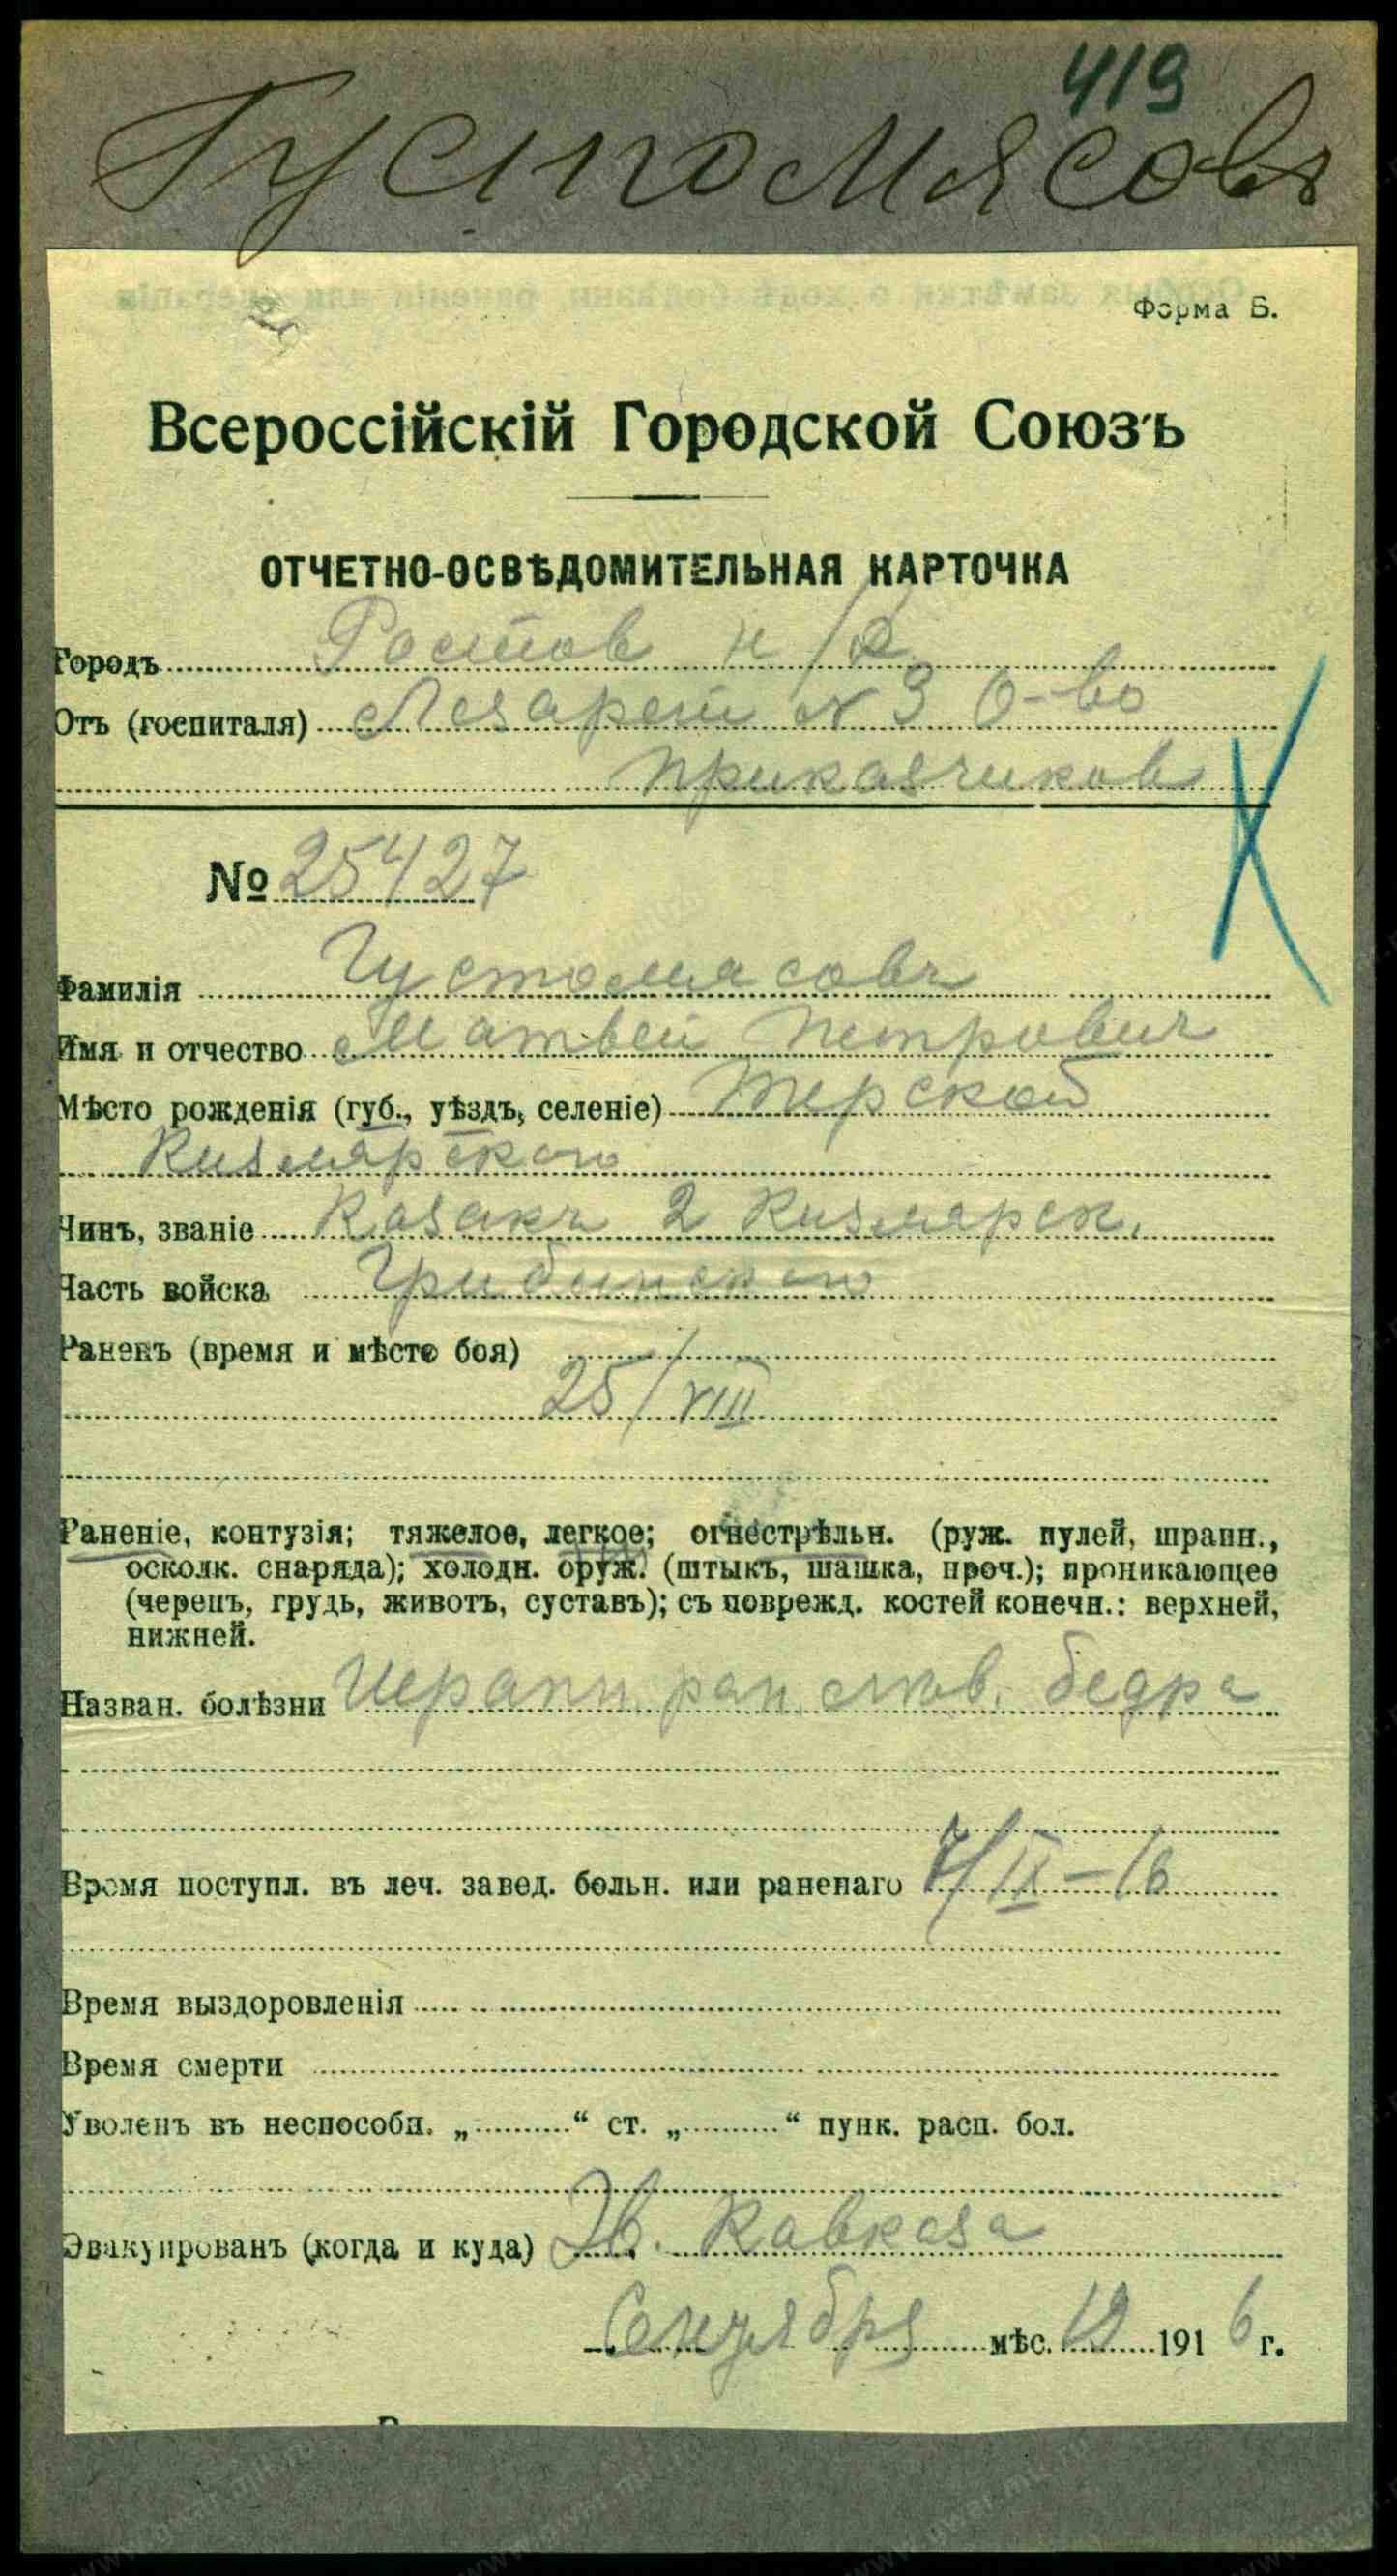 419
Густомясовъ
Форма Б.
Всероссійскій Городской Союзъ
ОТЧЕТНО-ОСВѢДОМИТЕЛЬНАЯ КАРТОЧКА
Городъ Ростов н/Д
Отъ (госпиталя) Лазарет № 3 О-во
приказчиков
№ 25427
Фамилія Густомясовъ
Имя и отчество Матвей Петрович
Мѣсто рожденія (губ., уѣздъ, селеніе) Терской
Кизлярского
Чинъ, званіе Казакъ 2 Кизлярск.
Часть войска
Раненъ (время и мѣсто боя)
25/VIII
Раненіе, контузія; тяжелое, легкое; огнестрѣльн. (руж. пулей, шрапн.,
осколк. снаряда); холодн. оруж. (штыкъ, шашка, проч.); проникающее
(черепъ, грудь, животъ, суставъ); съ поврежд. костей конечн.: верхней,
нижней.
Назван. болѣзни ран. бедра
Время поступл. въ леч. завед. больн. или раненаго /IX-16
Время выздоровленія
Время смерти
Уволенъ въ неспособн. „ “ ст. „ “ пунк. расп. бол.
Эвакуированъ (когда и куда) Кавказа
Сентября мѣс. 1916 г.